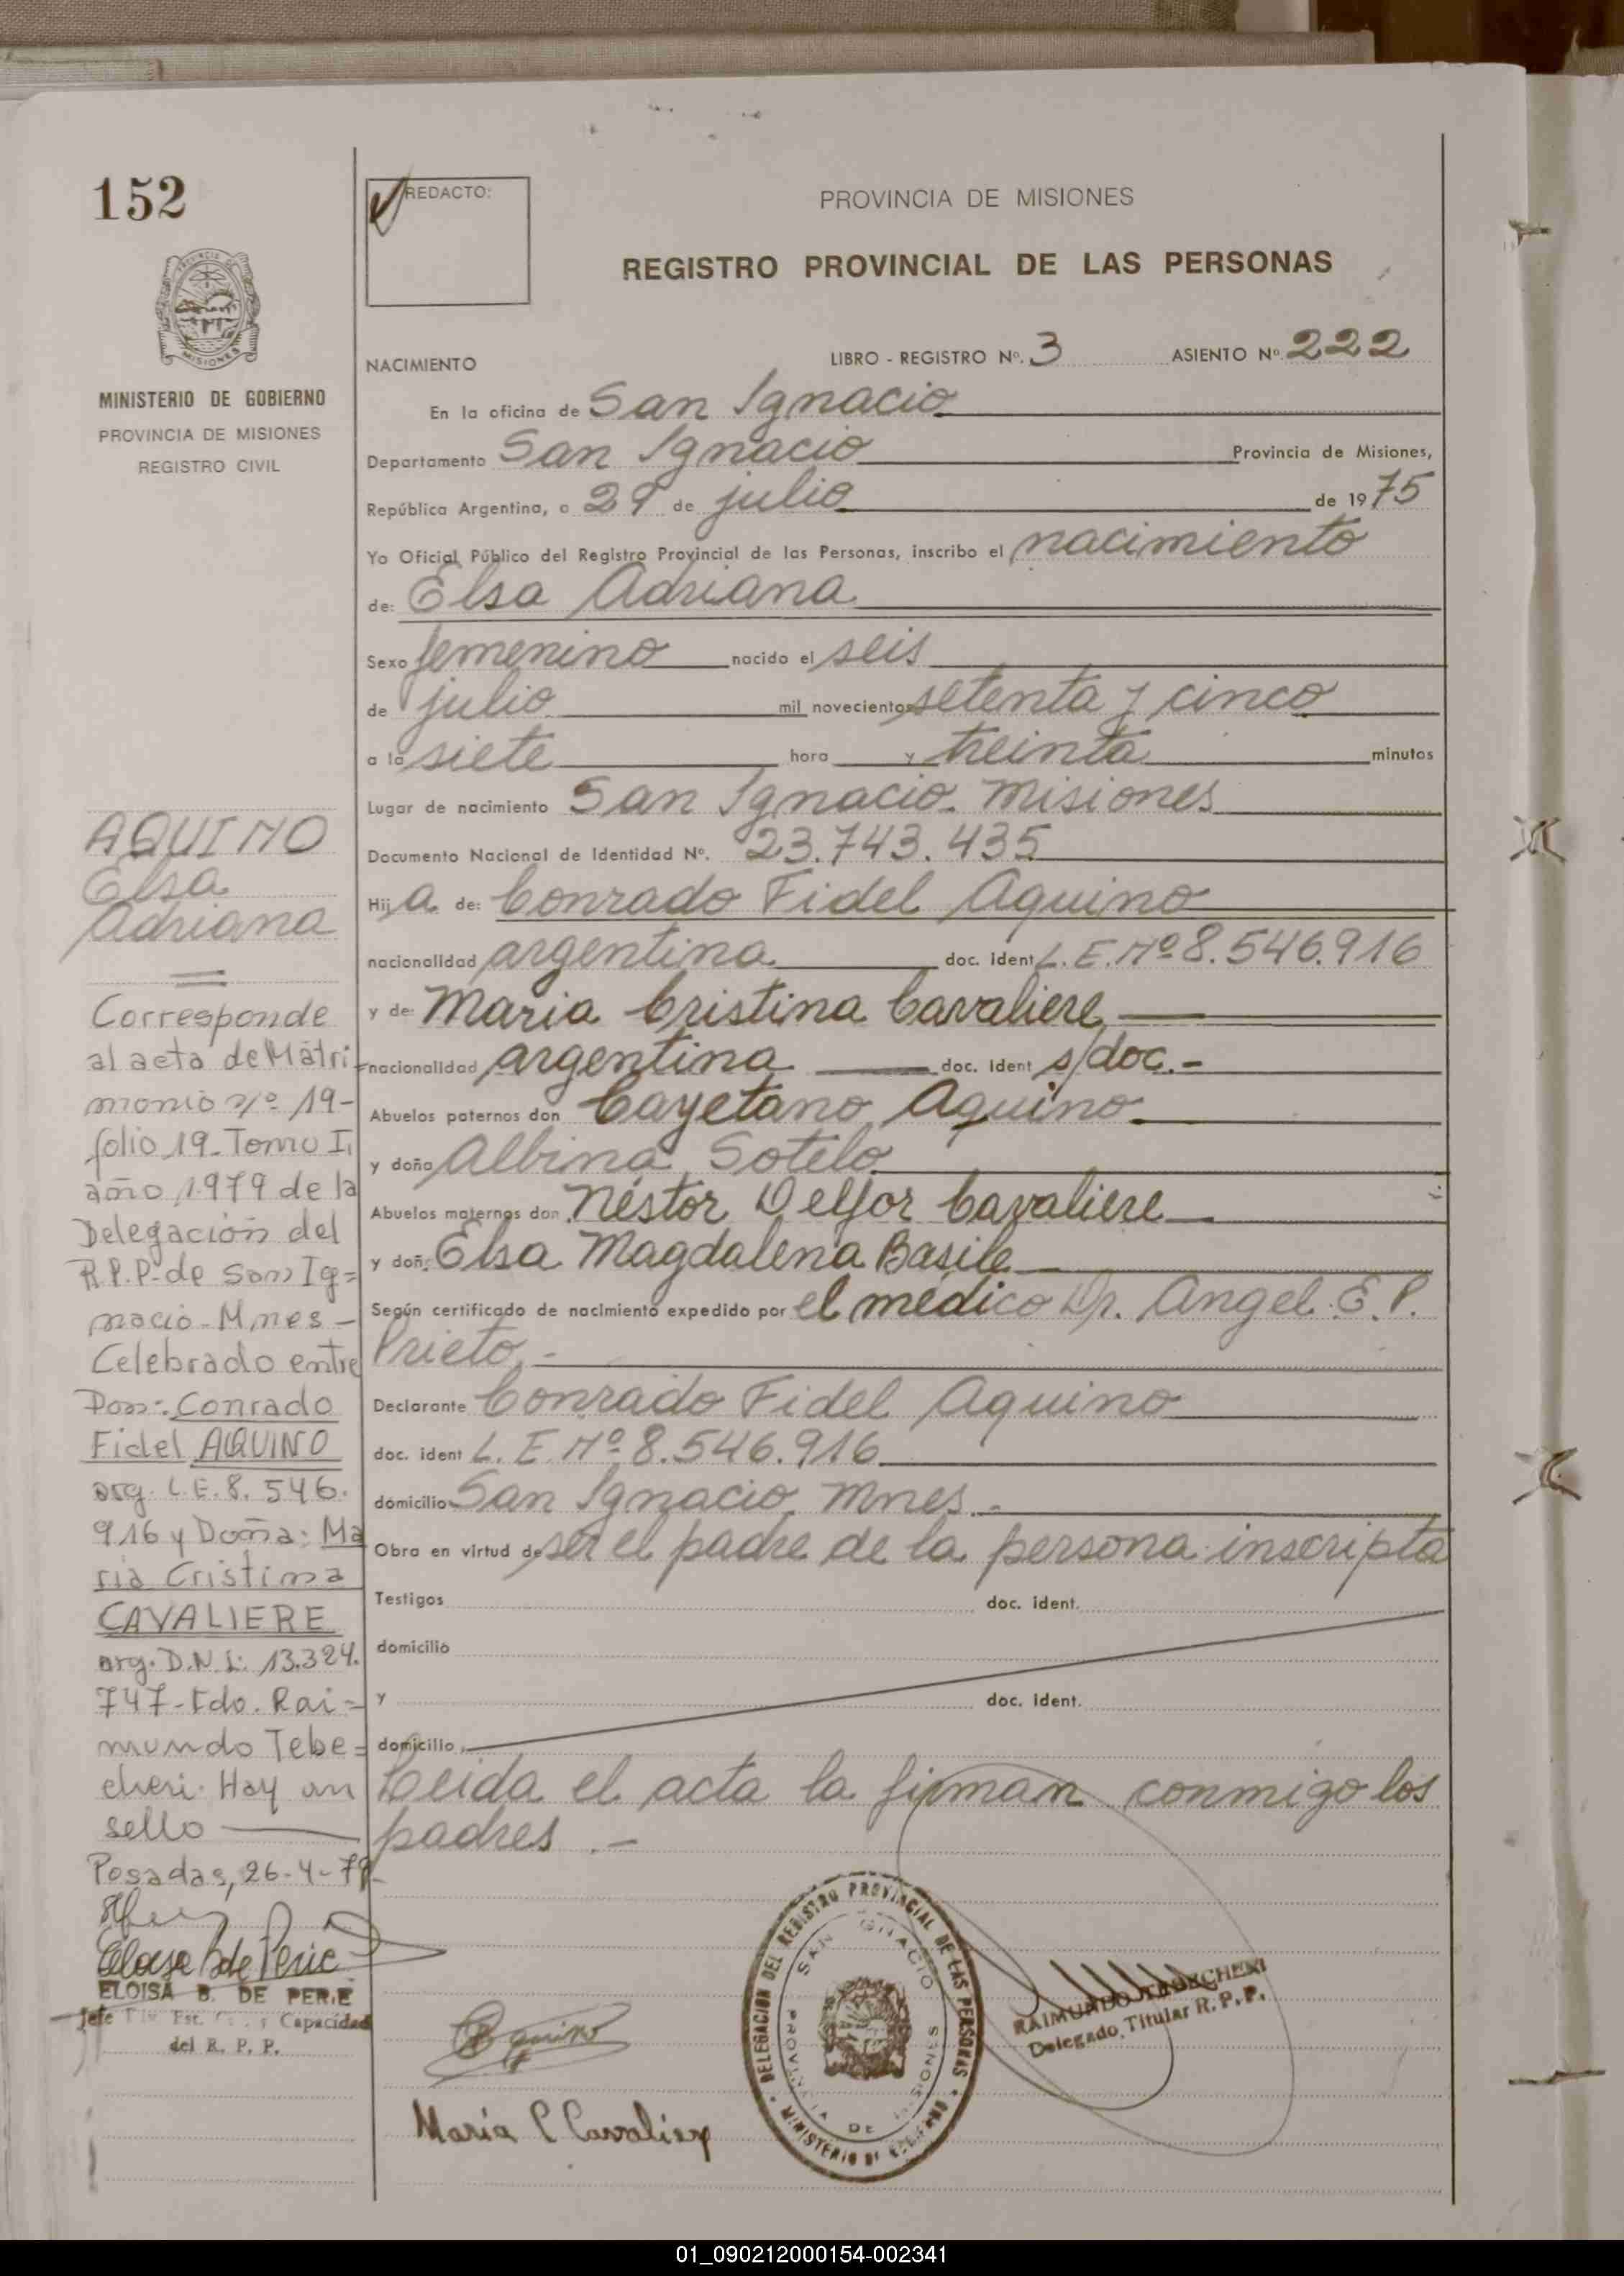 152
REDACTO:
PROVINCIA DE MISIONES
REGISTRO PROVINCIAL DE LAS PERSONAS
MISIONES
MINISTERIO DE GOBIERNO
PROVINCIA DE MISIONES
REGISTRO CIVIL
NACIMIENTO LIBRO - REGISTRO Nº. 3 ASIENTO Nº. 222
En la oficina de San Ignacio
Departamento San Ignacio Provincia de Misiones,
República Argentina, a 29 de julio de 1975
Yo Oficial Público del Registro Provincial de las Personas, inscribo el nacimiento
de: Elsa Adriana
Sexo femenino nacido el seis
de julio mil novecientos setenta y cinco
a la siete hora y treinta minutos
Lugar de nacimiento San Ignacio. Misiones
Documento Nacional de Identidad Nº. 23.743.435
Hija de: Conrado Fidel Aquino
nacionalidad argentina doc. ident L.E.Nº 8.546.916
y de Maria Cristina Cavaliere
nacionalidad argentina doc. ident s/doc.-
Abuelos paternos don Cayetano Aquino
y doña Albina Sotelo
Abuelos maternos don Néstor Delfor Cavaliere
y doña Elsa Magdalena Basile
Según certificado de nacimiento expedido por el médico Dr. Angel E.P.
Prieto.-
Declarante Conrado Fidel Aquino
doc. ident L.E.Nº 8.546.916
domicilio San Ignacio. Mnes.-
Obra en virtud de ser el padre de la persona inscripta
Testigos doc. ident.
domicilio
y doc. ident.
domicilio
Leida el acta la firman conmigo los
padres.-
AQUINO
Elsa
Adriana
Corresponde
al acta de Matri=
monio nº 19-
folio 19-Tomo I,
año 1979 de la
Delegación del
R.P.P. de San Ig=
nacio-Mnes-
Celebrado entre
Don: Conrado
Fidel AQUINO
arg. L.E. 8.546.
916 y Doña: Ma
ria Cristina
CAVALIERE
arg. D.N.I: 13.324.
747-Fdo. Rai=
mundo Tebe=
cheri. Hay un
sello
Posadas, 26-4-79-
ELOISA B. DE PERIE
Jefe Div Est. Capacidad
del R. P. P.
Aquino
María C Cavaliere
DELEGACION DEL REGISTRO PROVINCIAL DE LAS PERSONAS
MINISTERIO DE GOBIERNO
SAN IGNACIO
PROVINCIA DE MISIONES
RAIMUNDO
Delegado Titular R.P.P.
01_090212000154-002341